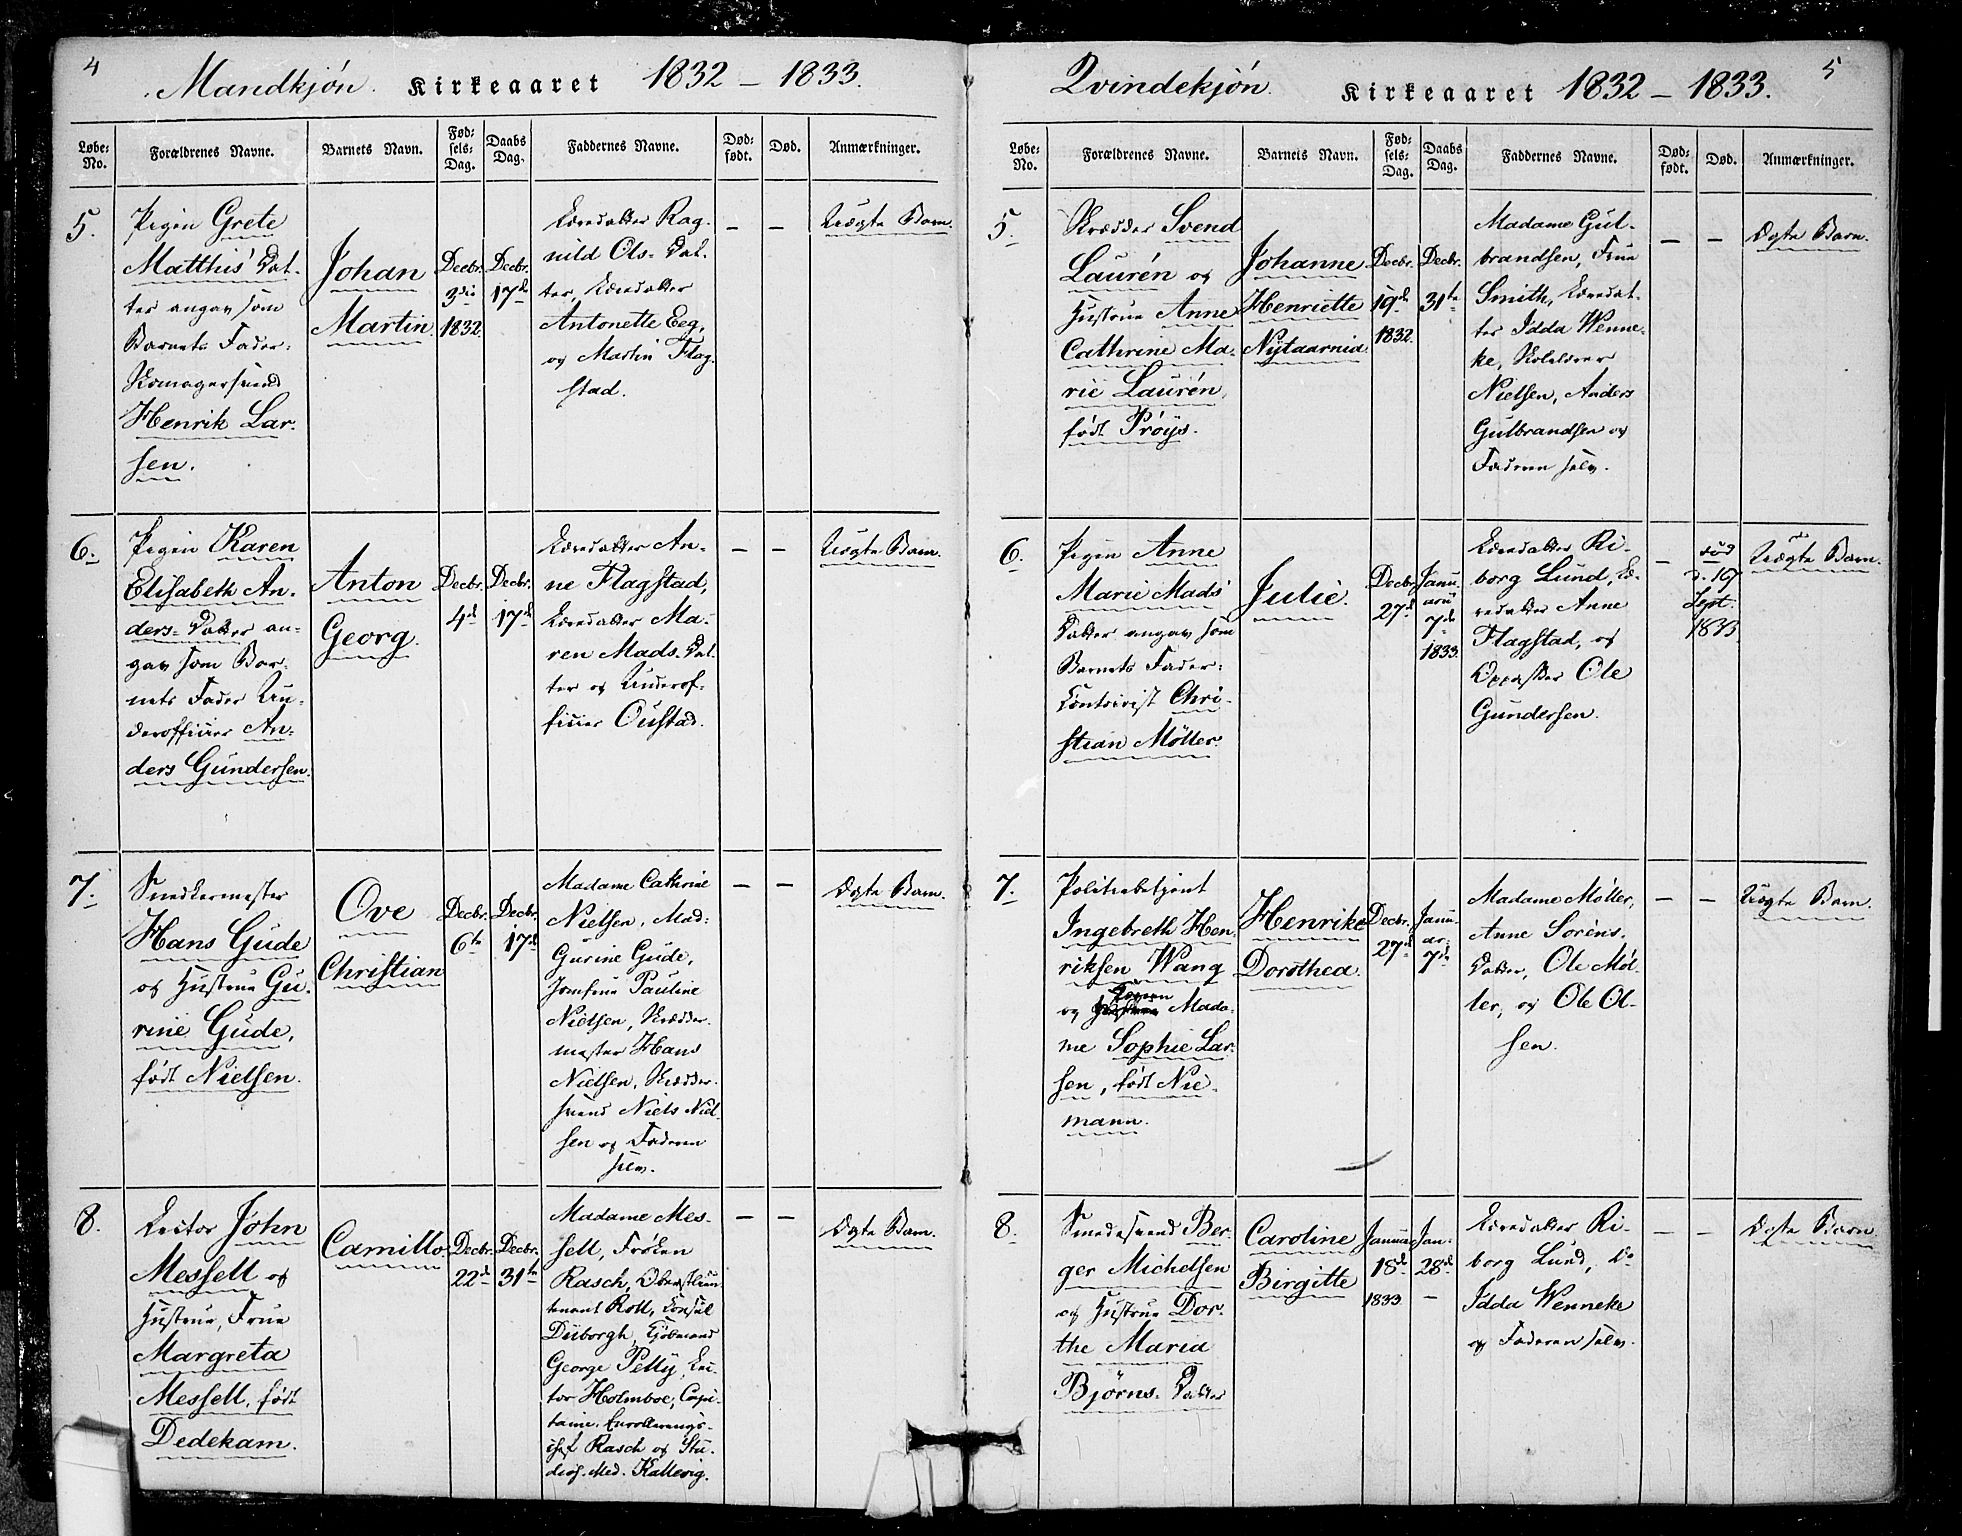 4
Mandkjøn. Kirkeaaret 1832 – 1833.
Løbe-No.
Forældrenes Navne.
Barnets Navn.
Fødsels-Dag.
Daabs Dag.
Faddernes Navne.
Død-født.
Død.
Anmærkninger.
5.
Pigen Grete
Matthis' Dat-
ter angav som
Barnets Fader:
Komagersvend
Henrik Lar-
sen.
Johan
Martin.
Decbr.
3die
1832.
Decbr.
17de
Ragnild Ols-Dat-
ter,
Antonette Eeg,
og Martin Flag-
stad.
– –
Uægte Barn.
6.
Pigen Karen
Elisabeth An-
ders-Datter an-
gav som Bar-
nets Fader Un-
derofficier An-
ders Gundersen.
Anton
Georg.
Decbr.
4de
Decbr.
17de
An-
ne Flagstad,
Ma-
ren Mads-Dat-
ter og Underof-
ficier Oustad.
– –
Uægte Barn.
7.
Snedkermester
Hans Gude
og Hustrue Gu-
rine Gude,
født Nielsen.
Ove
Christian
Decbr.
6te
Decbr.
17de
Madame Cathrine
Nielsen, Mad:
Gurine Gude,
Jomfrue Pauline
Nielsen, Skrædder-
mester Hans
Nielsen, Skrædder-
svend Niels Niel-
sen og Faderen
selv.
– –
Ægte Barn.
8.
Lector John
Messell og
Hustrue, Frue
Margreta
Messell, født
Dedekam.
Camillo.
Decbr.
22de
Decbr.
31te
Madame Mes-
sell, Frøken
Rasch, Oberstlieu-
tenant Roll, Consul
Diiborgh, Kjøbmand
George Petty, Lec-
tor Holmboe, Capi-
taine, Enrollerings-
chef Rasch og Stu-
dios. Med. Kallevig.
– –
Ægte Barn.
5
Qvindekjøn. Kirkeaaret 1832 – 1833.
Løbe-No.
Forældrenes Navne.
Barnets Navn.
Fødsels-Dag.
Daabs Dag.
Faddernes Navne.
Død-født.
Død.
Anmærkninger.
5.
Skrædder Svend
Laurén og
Hustrue Anne
Cathrine Ma-
rie Laurén,
født Prøys.
Johanne
Henriette
Nytaarnia.
Decbr.
19de
1832.
Decbr.
31te
Madame Gul-
brandsen, Frue
Smith,
Idda Wenne-
ke, Skolelærer
Nielsen, Anders
Gulbrandsen og
Faderen selv.
– –
Ægte Barn.
6.
Pigen Anne
Marie Mads
Datter angav som
Barnets Fader:
Contorist Chri-
stian Møller.
Julie.
Decbr.
27de
Janu-
arii
7de
1833.
Ri-
borg Lund,
Anne
Flagstad, og
Opasser Ole
Gundersen.
–
død
d. 19
Sept.
1833.
Uægte Barn.
7.
Politiebetjent
Ingebreth Hen-
riksen Wang
og Mada-
me Sophie Lar-
sen, født Nie-
mann.
Henrike
Dorothea.
Decbr.
27de
Janu-
ar:
7de
Madame Møller,
Anne Sørens-
Datter, Ole Møl-
ler, og Ole Ol-
sen.
– –
Uægte Barn.
8.
Smedesvend Ber-
ger Michelsen
og Hustrue Dor-
the Maria
Bjørns-Datter
Caroline
Birgitte
Januar
18de
1833.
Jan-
28de
–
Ri-
borg Lund, Do
Idda Wenneke
og Faderen selv.
– –
Ægte Barn.